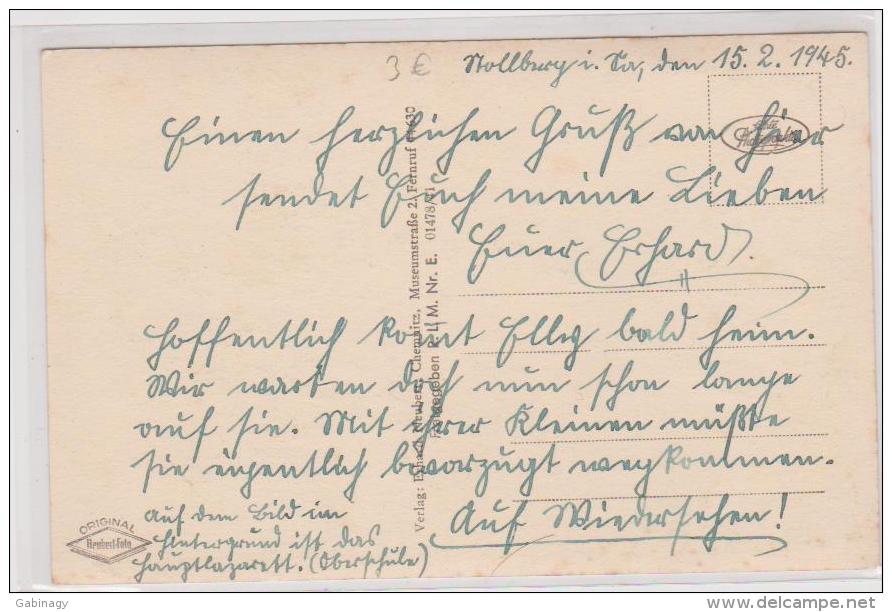 3 €
Stollberg i. Sa, den 15. 2. 1945.
Einen herzlichen Gruß von hier
sendet Euch meine Lieben
Euer Erhard.
Hoffentlich komt Elly bald heim.
Wir warten doch nun schon lange
auf sie. Mit ihrer Kleinen müßte
sie eigentlich bevorzugt wegkommen.
Auf Wiedersehen!
auf dem Bild im
Hintergrund ist das
Hauptlazarett. (Oberschule)
Verlag: Erhard Neubert, Chemnitz, Museumstraße 2, Fernruf
Freigegeben RLM. Nr. E. 01478/41
ORIGINAL
Neubert-Foto
Gabinagy
www.delcampe.net